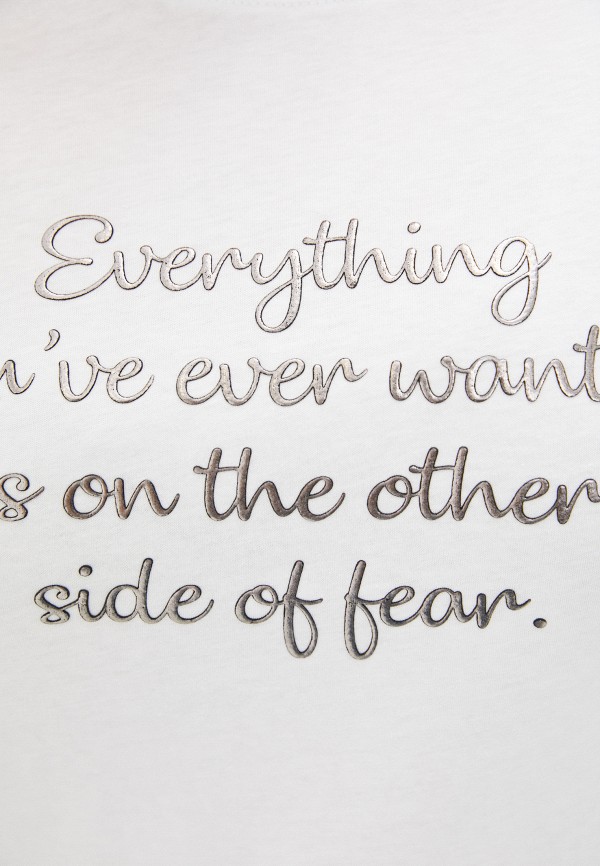 Everything
u've ever want
s on the other
side of fear.